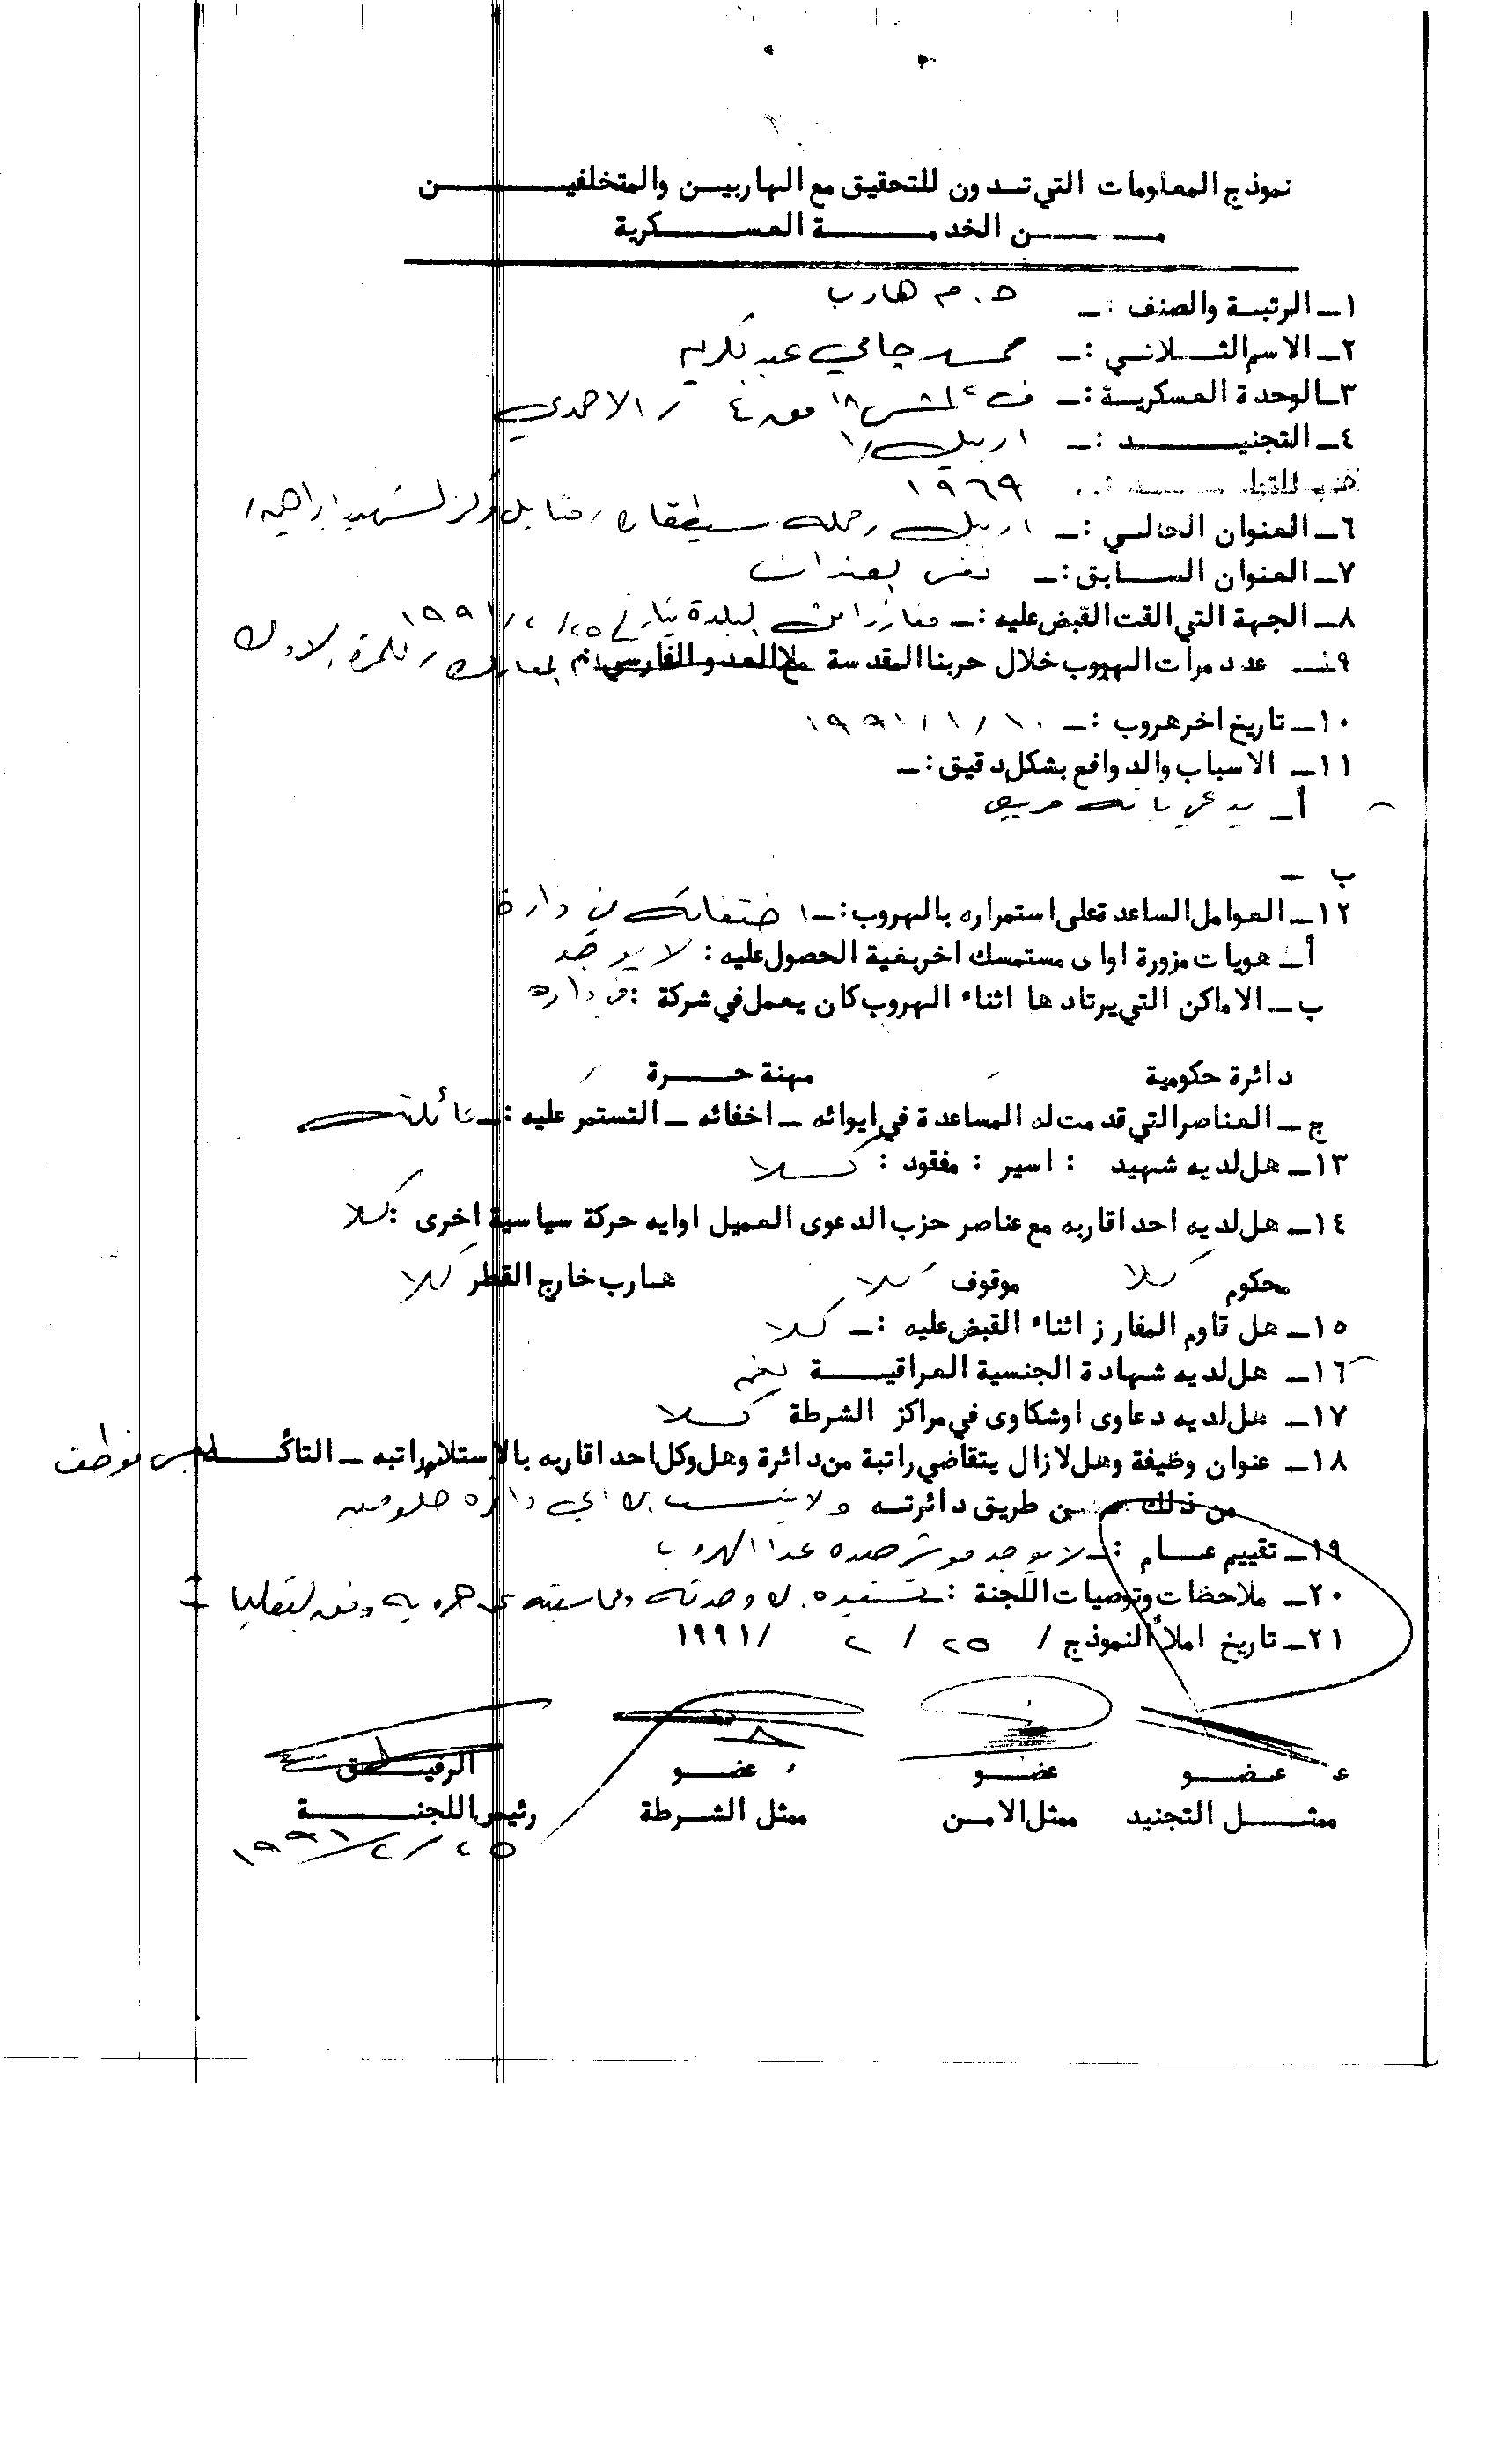 نموذج المعلومات التي تدون للتحقيق مع الهاربين والمتخلفين
من الخدمة العسكرية
١ـ الرتبة والصنف :ـ ح. م هارب
٢ـ الاسم الثلاثي :ـ محمد جامي عبدكريم
٣ـ الوحدة العسكرية :ـ ف ٢ لمش ١٨ / الاحمدي
٤ـ التجنيد :ـ اربيل/١
١٩٦٩
٦ـ العنوان الحالي :ـ اربيل / محلة سيطاقان / مقابل مركز الشهيد ابراهيم
٧ـ العنوان السابق :ـ نفس العنوان
٨ـ الجهة التي القت القبض عليه :ـ مفارز امن البلدة بتاريخ ٢٥/ ٢/ ١٩٩١
٩ـ عدد مرات الهروب خلال حربنا المقدسة مع العدو الفارسي ام المعارك / للمرة الاولى
١٠ـ تاريخ اخر هروب :ـ ١٠ / ١ / ١٩٩١
١١ـ الاسباب والدوافع بشكل دقيق :ـ
أـ يدعي بانه مريض
ب ـ
١٢ـ العوامل الساعدة على استمراره بالهروب :ـ اختفائه في داره
أـ هويات مزورة اواى مستمسك اخر بغية الحصول عليه : لا يوجد
ب ـ الاماكن التي يرتادها اثناء الهروب كان يعمل في شركة : في داره
دائرة حكومية / مهنة حرة /
ج ـ العناصر التي قدمت له المساعدة في ايوائه ـ اخفائه ـ التستمر عليه :ـ عائلته
١٣ـ هل لديه شهيد : اسير : مفقود : كلا
١٤ـ هل لديه احد اقاربه مع عناصر حزب الدعوى العميل اوايه حركة سياسية اخرى : كلا
محكوم كلا موقوف كلا هارب خارج القطر كلا
١٥ـ هل قاوم المفارز اثناء القبض عليه :ـ كلا
١٦ـ هل لديه شهادة الجنسية العراقية نعم
١٧ـ هل لديه دعاوى اوشكاوى في مراكز الشرطة كلا
١٨ـ عنوان وظيفة وهل لازال يتقاضي راتبة من دائرة وهل وكل احد اقاربه بالاستلام راتبه ـ التأكد ليس موظف
من ذلك عن طريق دائرته ولا ينتسب الى اي دائرة حكومية
١٩ـ تقييم عام :ـ لا يوجد موشر ضده عدا الهروب
٢٠ـ ملاحظات وتوصيات اللجنة :ـ تسفيره الى وحدته ومحاسبته على هروبه وفق التعليمات
٢١ـ تاريخ املأ النموذج / ٢٥ / ٢ /١٩٩١
عضو عضو عضو الرفيق
ممثل التجنيد ممثل الامن ممثل الشرطة رئيس اللجنة
٢٥ /٢/ ١٩٩١